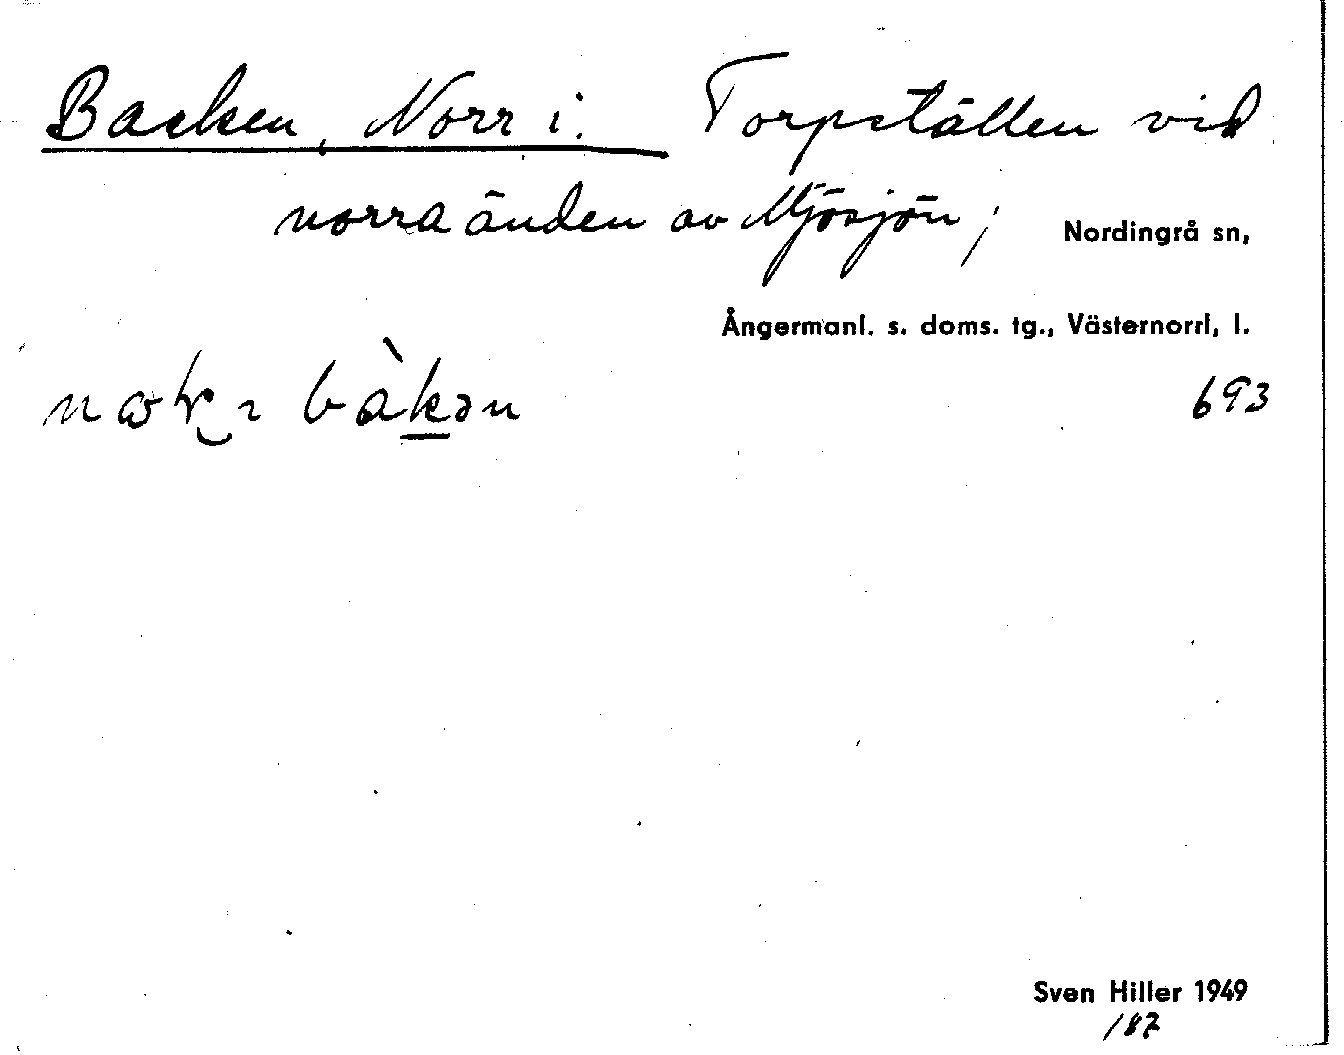 Backen, Norr i. Torpställen vid
norra änden av Mjösjön;
Nordingrå sn,
Ångermanl. s. doms. tg., Västernorrl. l.
693
bàkən
Sven Hiller 1949
187